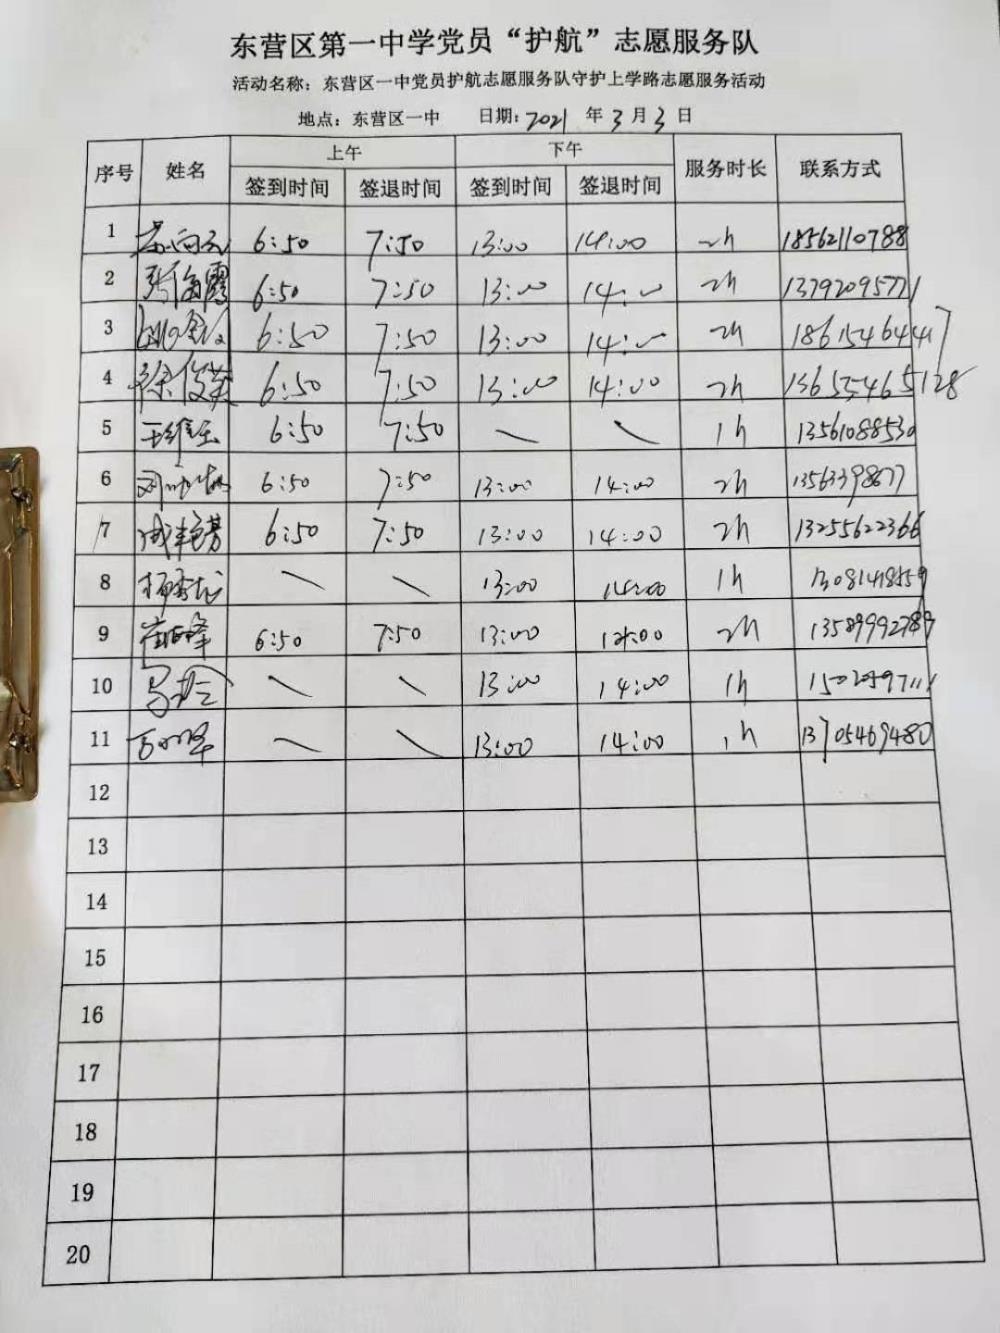 东营区第一中学党员“护航”志愿服务队
活动名称：东营区一中党员护航志愿服务队守护上学路志愿服务活动
地点：东营区一中 日期：2021 年 3 月 3 日
序号 姓名 上午 下午 服务时长 联系方式
签到时间 签退时间 签到时间 签退时间
1 6:50 7:50 13:00 14:00 2h 18562110788
2 张海霞 6:50 7:50 13:00 14:00 2h 13792095771
3 6:50 7:50 13:00 14:00 2h 18615464417
4 徐俊英 6:50 7:50 13:00 14:00 2h 13655465128
5 6:50 7:50 \ \ 1h 13561088530
6 6:50 7:50 13:00 14:00 2h 13563398677
7 6:50 7:50 13:00 14:00 2h 13255622366
8 \ \ 13:00 14:00 1h 13081418559
9 6:50 7:50 13:00 14:00 2h 13589992789
10 \ \ 13:00 14:00 1h
11 \ \ 13:00 14:00 1h 13705469480
12
13
14
15
16
17
18
19
20